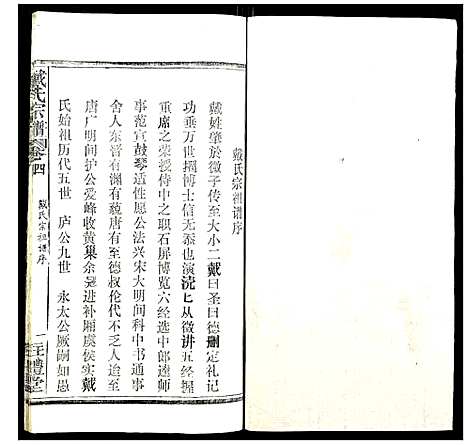 戴氏宗祖谱序
戴姓肇於微子传至大小二戴曰圣曰德删定礼记
功垂万世摺博士信无忝也演浇七从微讲五经握
重席之荣授侍中之职石屏博览六经选中郎逵师
事范宣鼓琴适性愿公法兴宋大明间科中书通事
舍人东晋有渊有藐唐有至德叔伦代不乏人迨至
唐广明间护公爱峰收黄巢余吴进补厢虞侯实戴
氏始祖历代五世 庐公九世 永太公厥嗣如愚
戴氏宗谱 卷之四
戴氏宗祖谱序
一
注礼堂